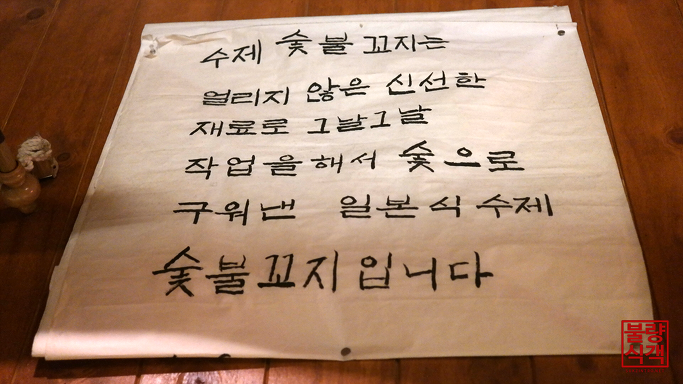 수제 숯불 꼬지는
얼리지 않은 신선한
재료로 그날그날
작업을해서 숯으로
구워낸 일본식 수제
숯불꼬지입니다
불량
식객